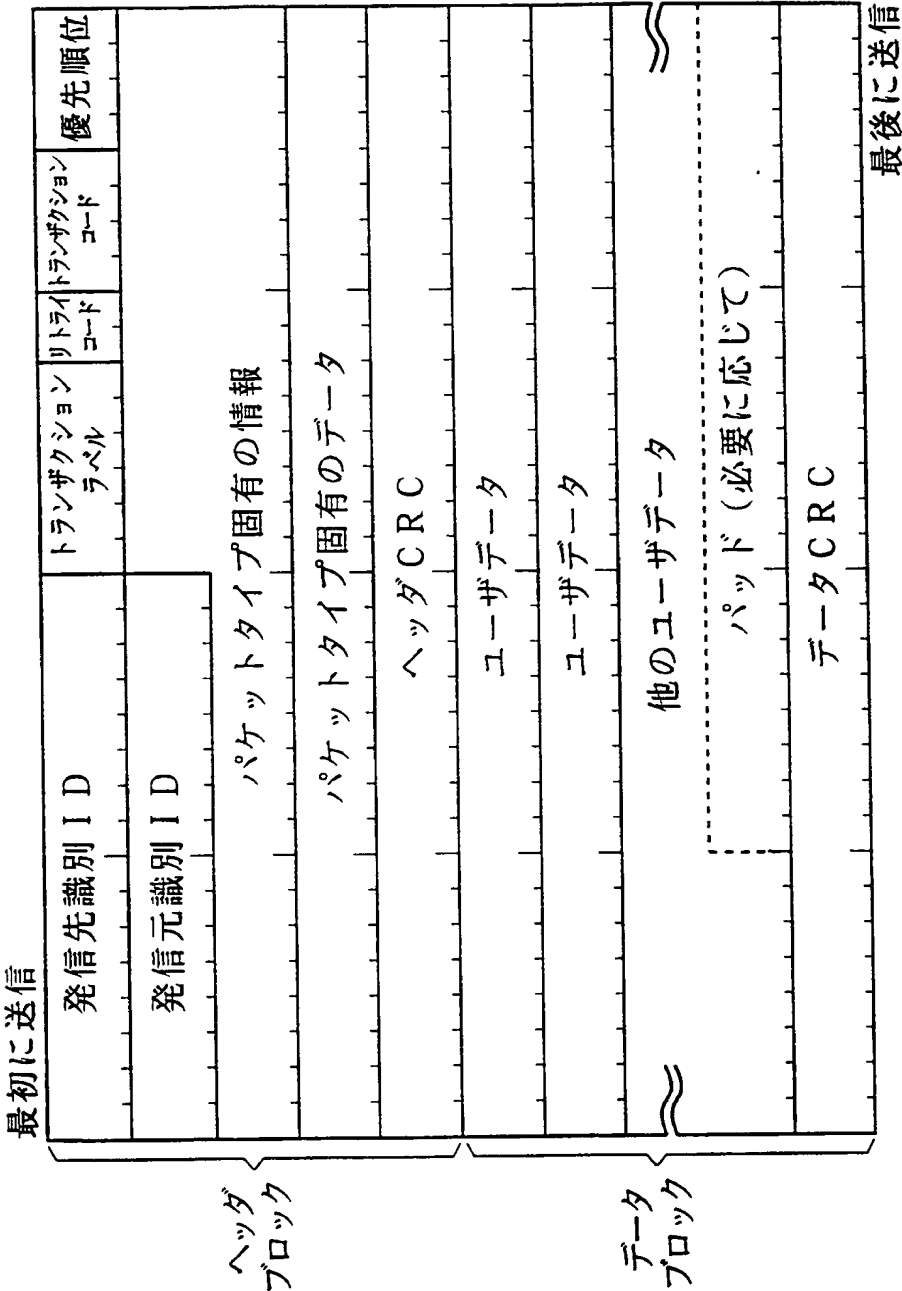 最初に送信
発信先識別ID
トランザクション
ラベル
リトライ
コード
トランザクション
コード
優先順位
発信元識別ID
パケットタイプ固有の情報
パケットタイプ固有のデータ
ヘッダCRC
ユーザデータ
ユーザデータ
他のユーザデータ
パッド(必要に応じて)
データCRC
最後に送信
ヘッダ
ブロック
データ
ブロック